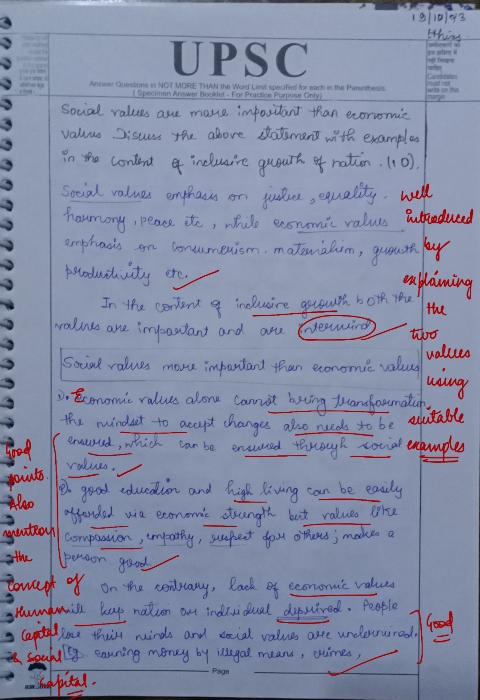 19/10/23
Ethics
UPSC
Answer Questions in NOT MORE THAN the Word Limit specified for each in the Parenthesis.
( Specimen Answer Booklet - For Practice Purpose Only)
Candidates must not write on this margin
Social values are more important than economic
values Discuss the above statement with examples
in the content of inclusive growth of nation. (10).
Social values emphasis on justice, equality.
harmony, peace etc, while economic values
emphasis on consumerism. materialism, growth
productivity etc.
In the content of inclusive growth both the
values are important and are
Social values more important than economic values
1). Economic values alone cannot bring transformation,
the mindset to accept changes also needs to be
ensured, which can be ensured through social
values.
2). good education and high living can be easily
afforded via economic strength but values like
compassion, empathy, respect for others; makes a
person good
On the contrary, lack of economic values
will keep nation or individual deprived. People
lose their minds and social values are undermined.
Eg earning money by illegal means, crimes,
Page
Well
introduced
by
explaining
the
two
values
using
suitable
examples
Good
points.
Also
mention
the
concept of
Human
Capital
& Social
Capital.
Good